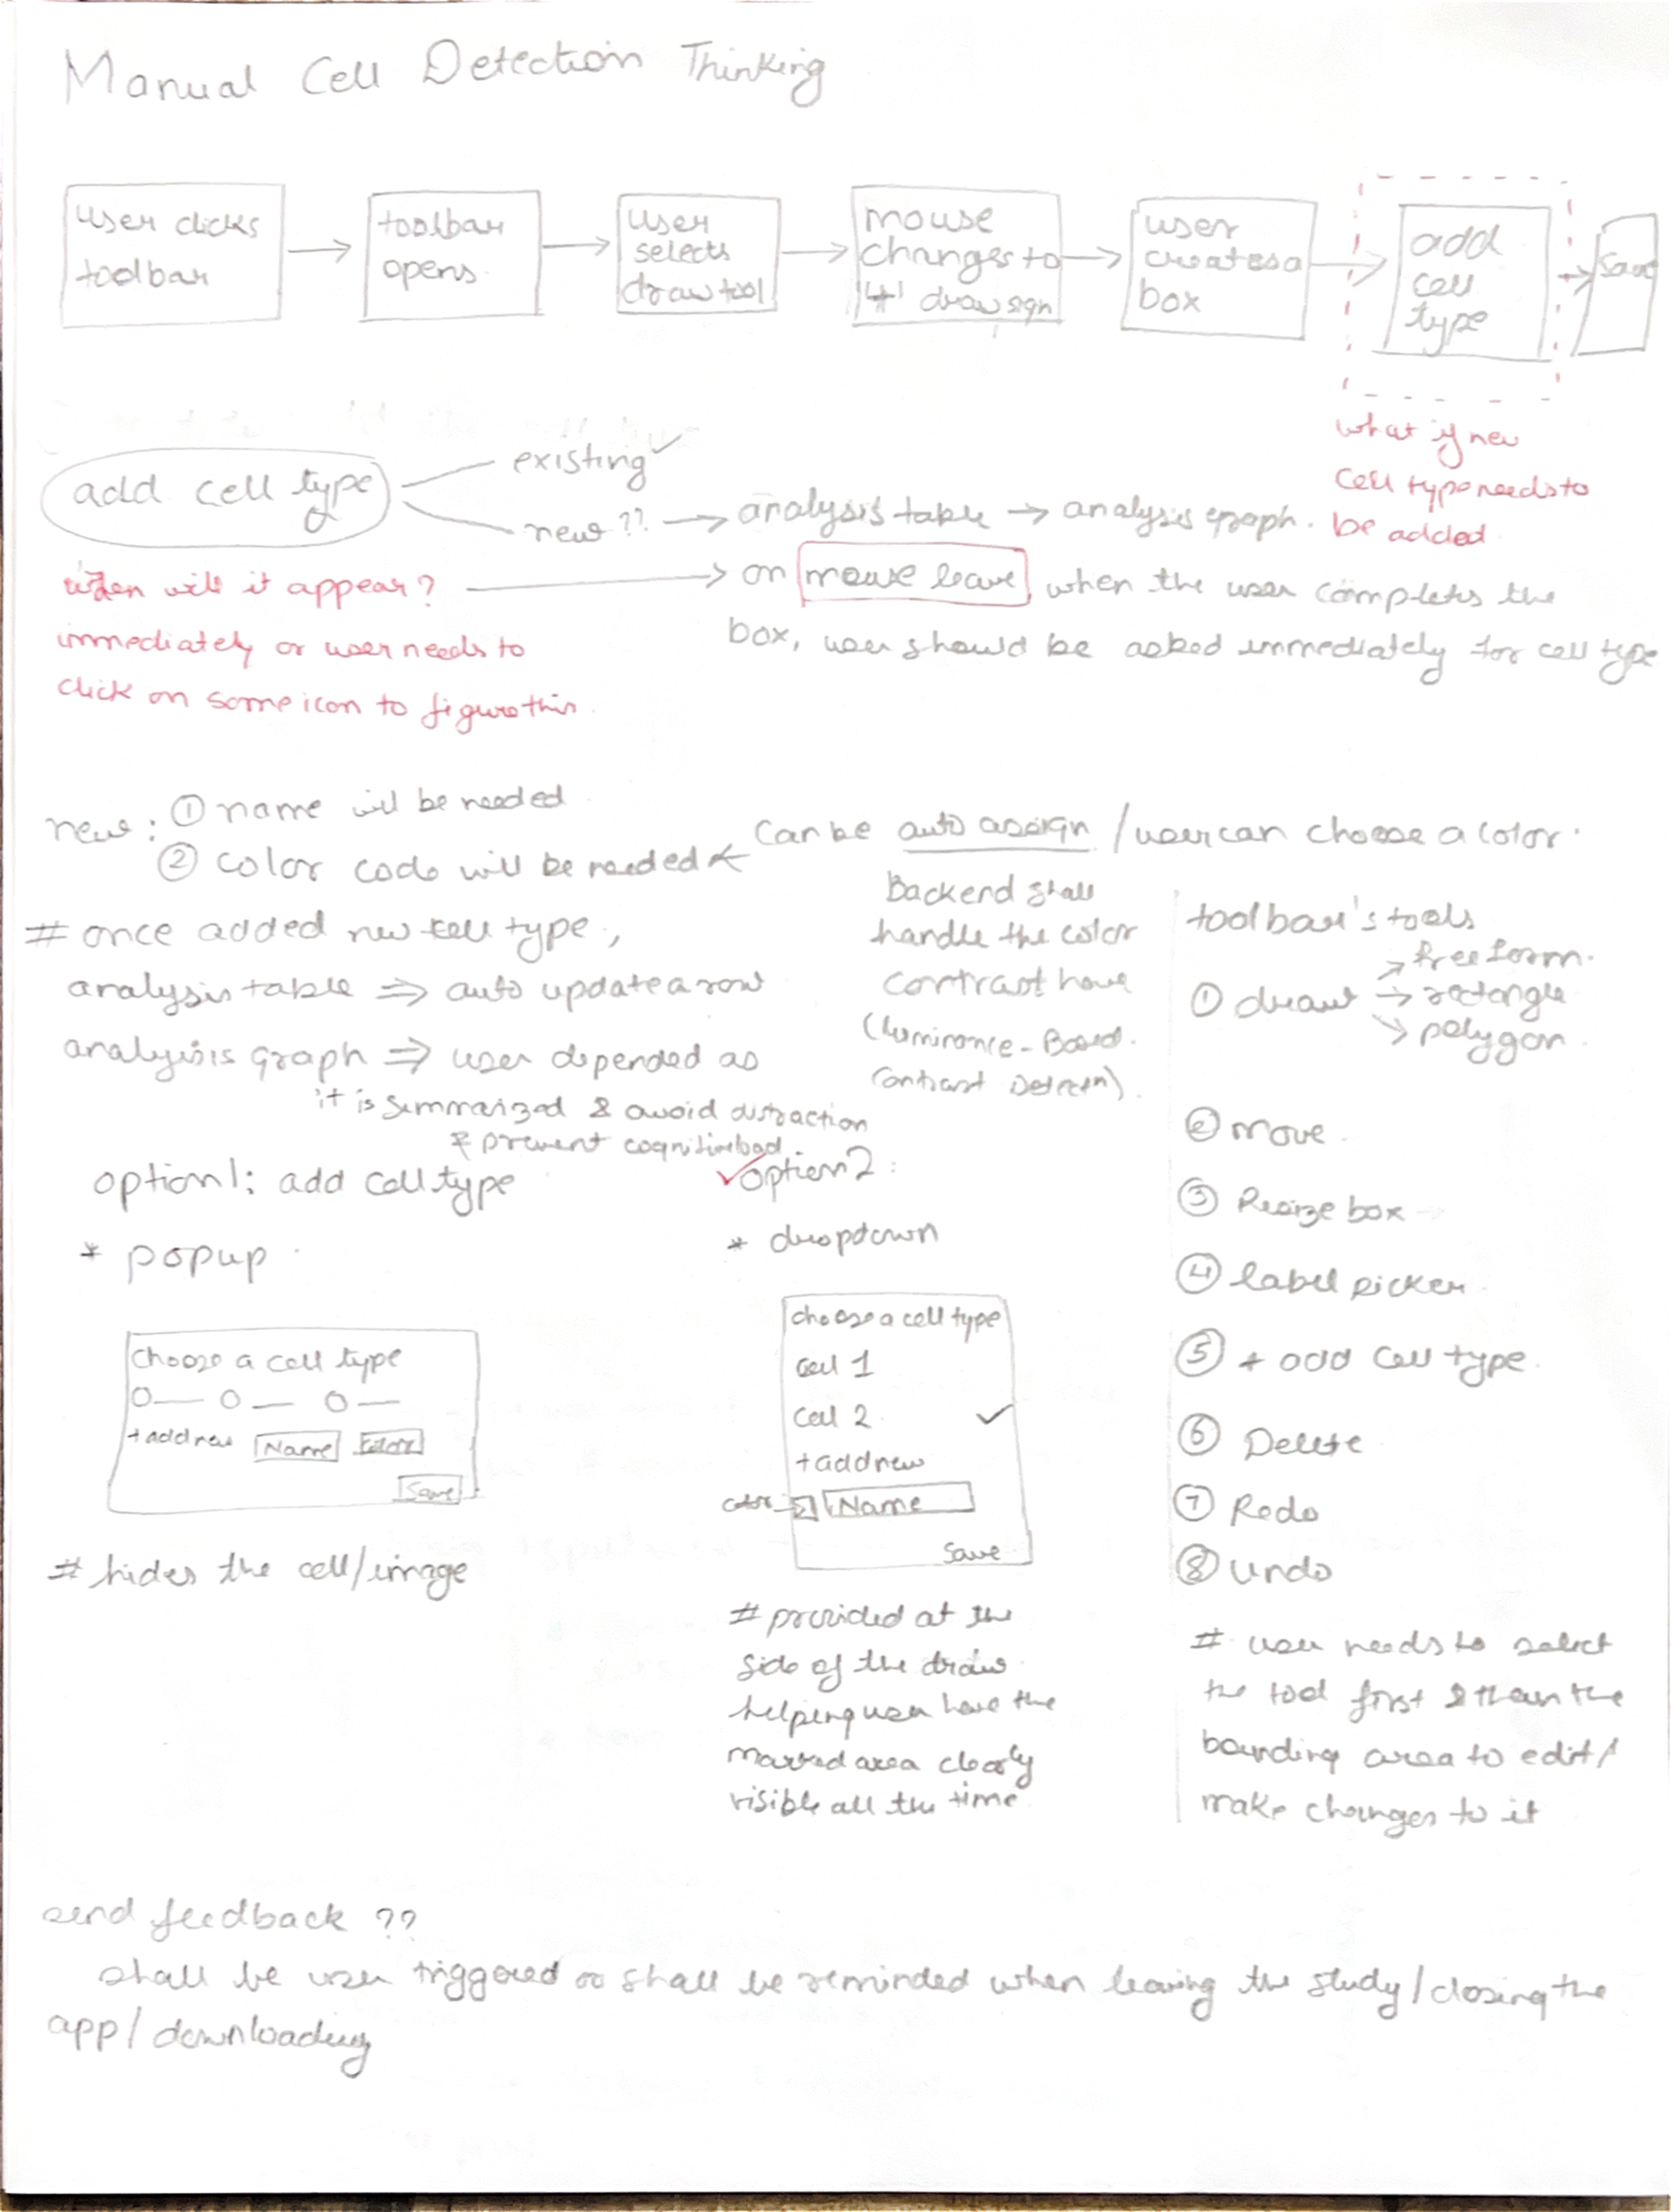 Manual Cell Detection Thinking
user clicks
toolbar
toolbar
opens
user
selects
draw tool
mouse
changes to
'+' draw sign
user
creates a
box
add
cell
type
Save
what if new
cell type needs to
be added
add cell type
existing ✓
new ?? → analysis table → analysis graph.
when will it appear?
immediately or user needs to
click on some icon to figure this.
on mouse leave when the user completes the
box, user should be asked immediately for cell type
new: ① name will be needed
② color code will be needed
can be auto assign / user can choose a color.
Backend shall
handle the color
contrast have
(Luminance-Based.
Contrast Detection).
# once added new cell type,
analysis table ⇒ auto update a row
analysis graph ⇒ user depended as
it is summarized & avoid distraction
& prevent cognitive load
toolbar's tools
① draw → freeform.
→ rectangle
→ polygon.
② move
③ Resize box
④ label picker
⑤ + add cell type.
⑥ Delete
⑦ Redo
⑧ Undo
# user needs to select
the tool first & then the
bounding area to edit/
make changes to it
option 1: add cell type
* popup
Choose a cell type
+ add new Name Color
Save
# hides the cell/image
✓ option 2:
* dropdown
choose a cell type
Cell 1
Cell 2 ✓
+ add new
color Name
Save
# provided at the
side of the draw
helping user have the
marked area clearly
visible all the time
send feedback ??
shall be user triggered or shall be reminded when leaving the study/closing the
app/downloading